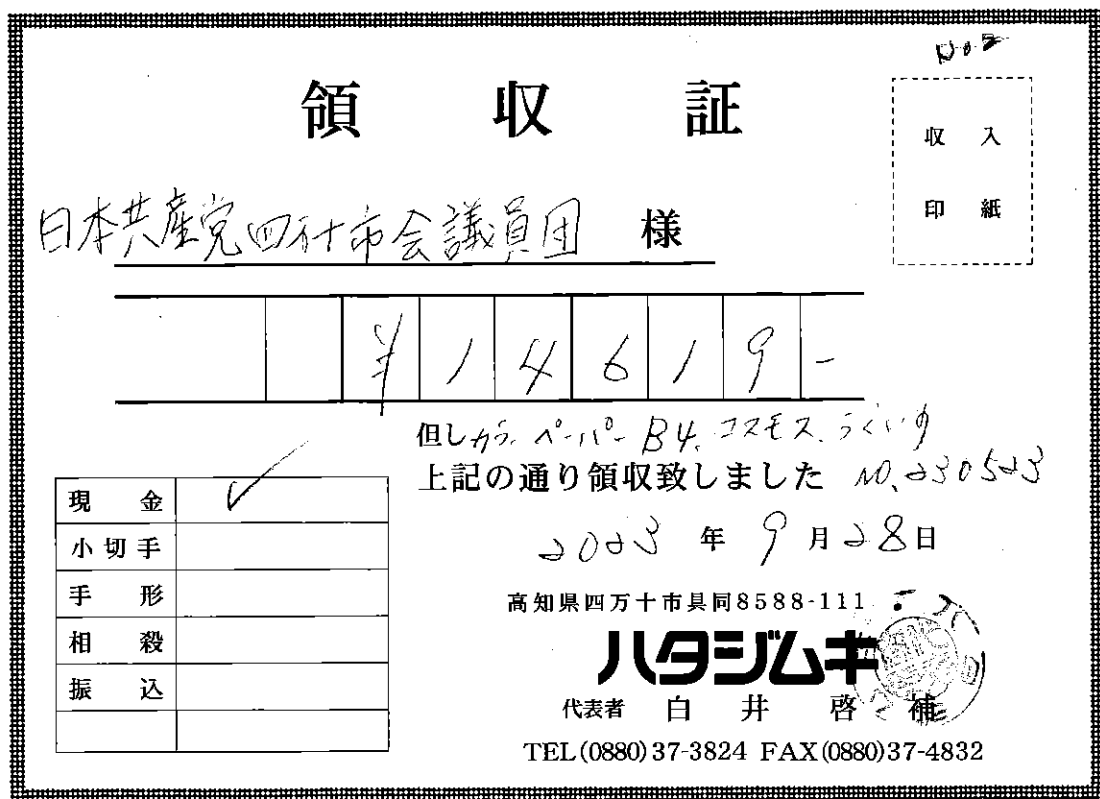 No.2
領収証
収入
印紙
日本共産党四万十市会議員団 様
¥14619-
但しカラーペーパーB4.コスモス.うぐいす
上記の通り領収致しました NO.230523
現金 ✓
小切手
手形
相殺
振込
2023年9月28日
高知県四万十市具同8588-111
ハタジムキ
代表者 白井啓補
TEL(0880)37-3824 FAX(0880)37-4832